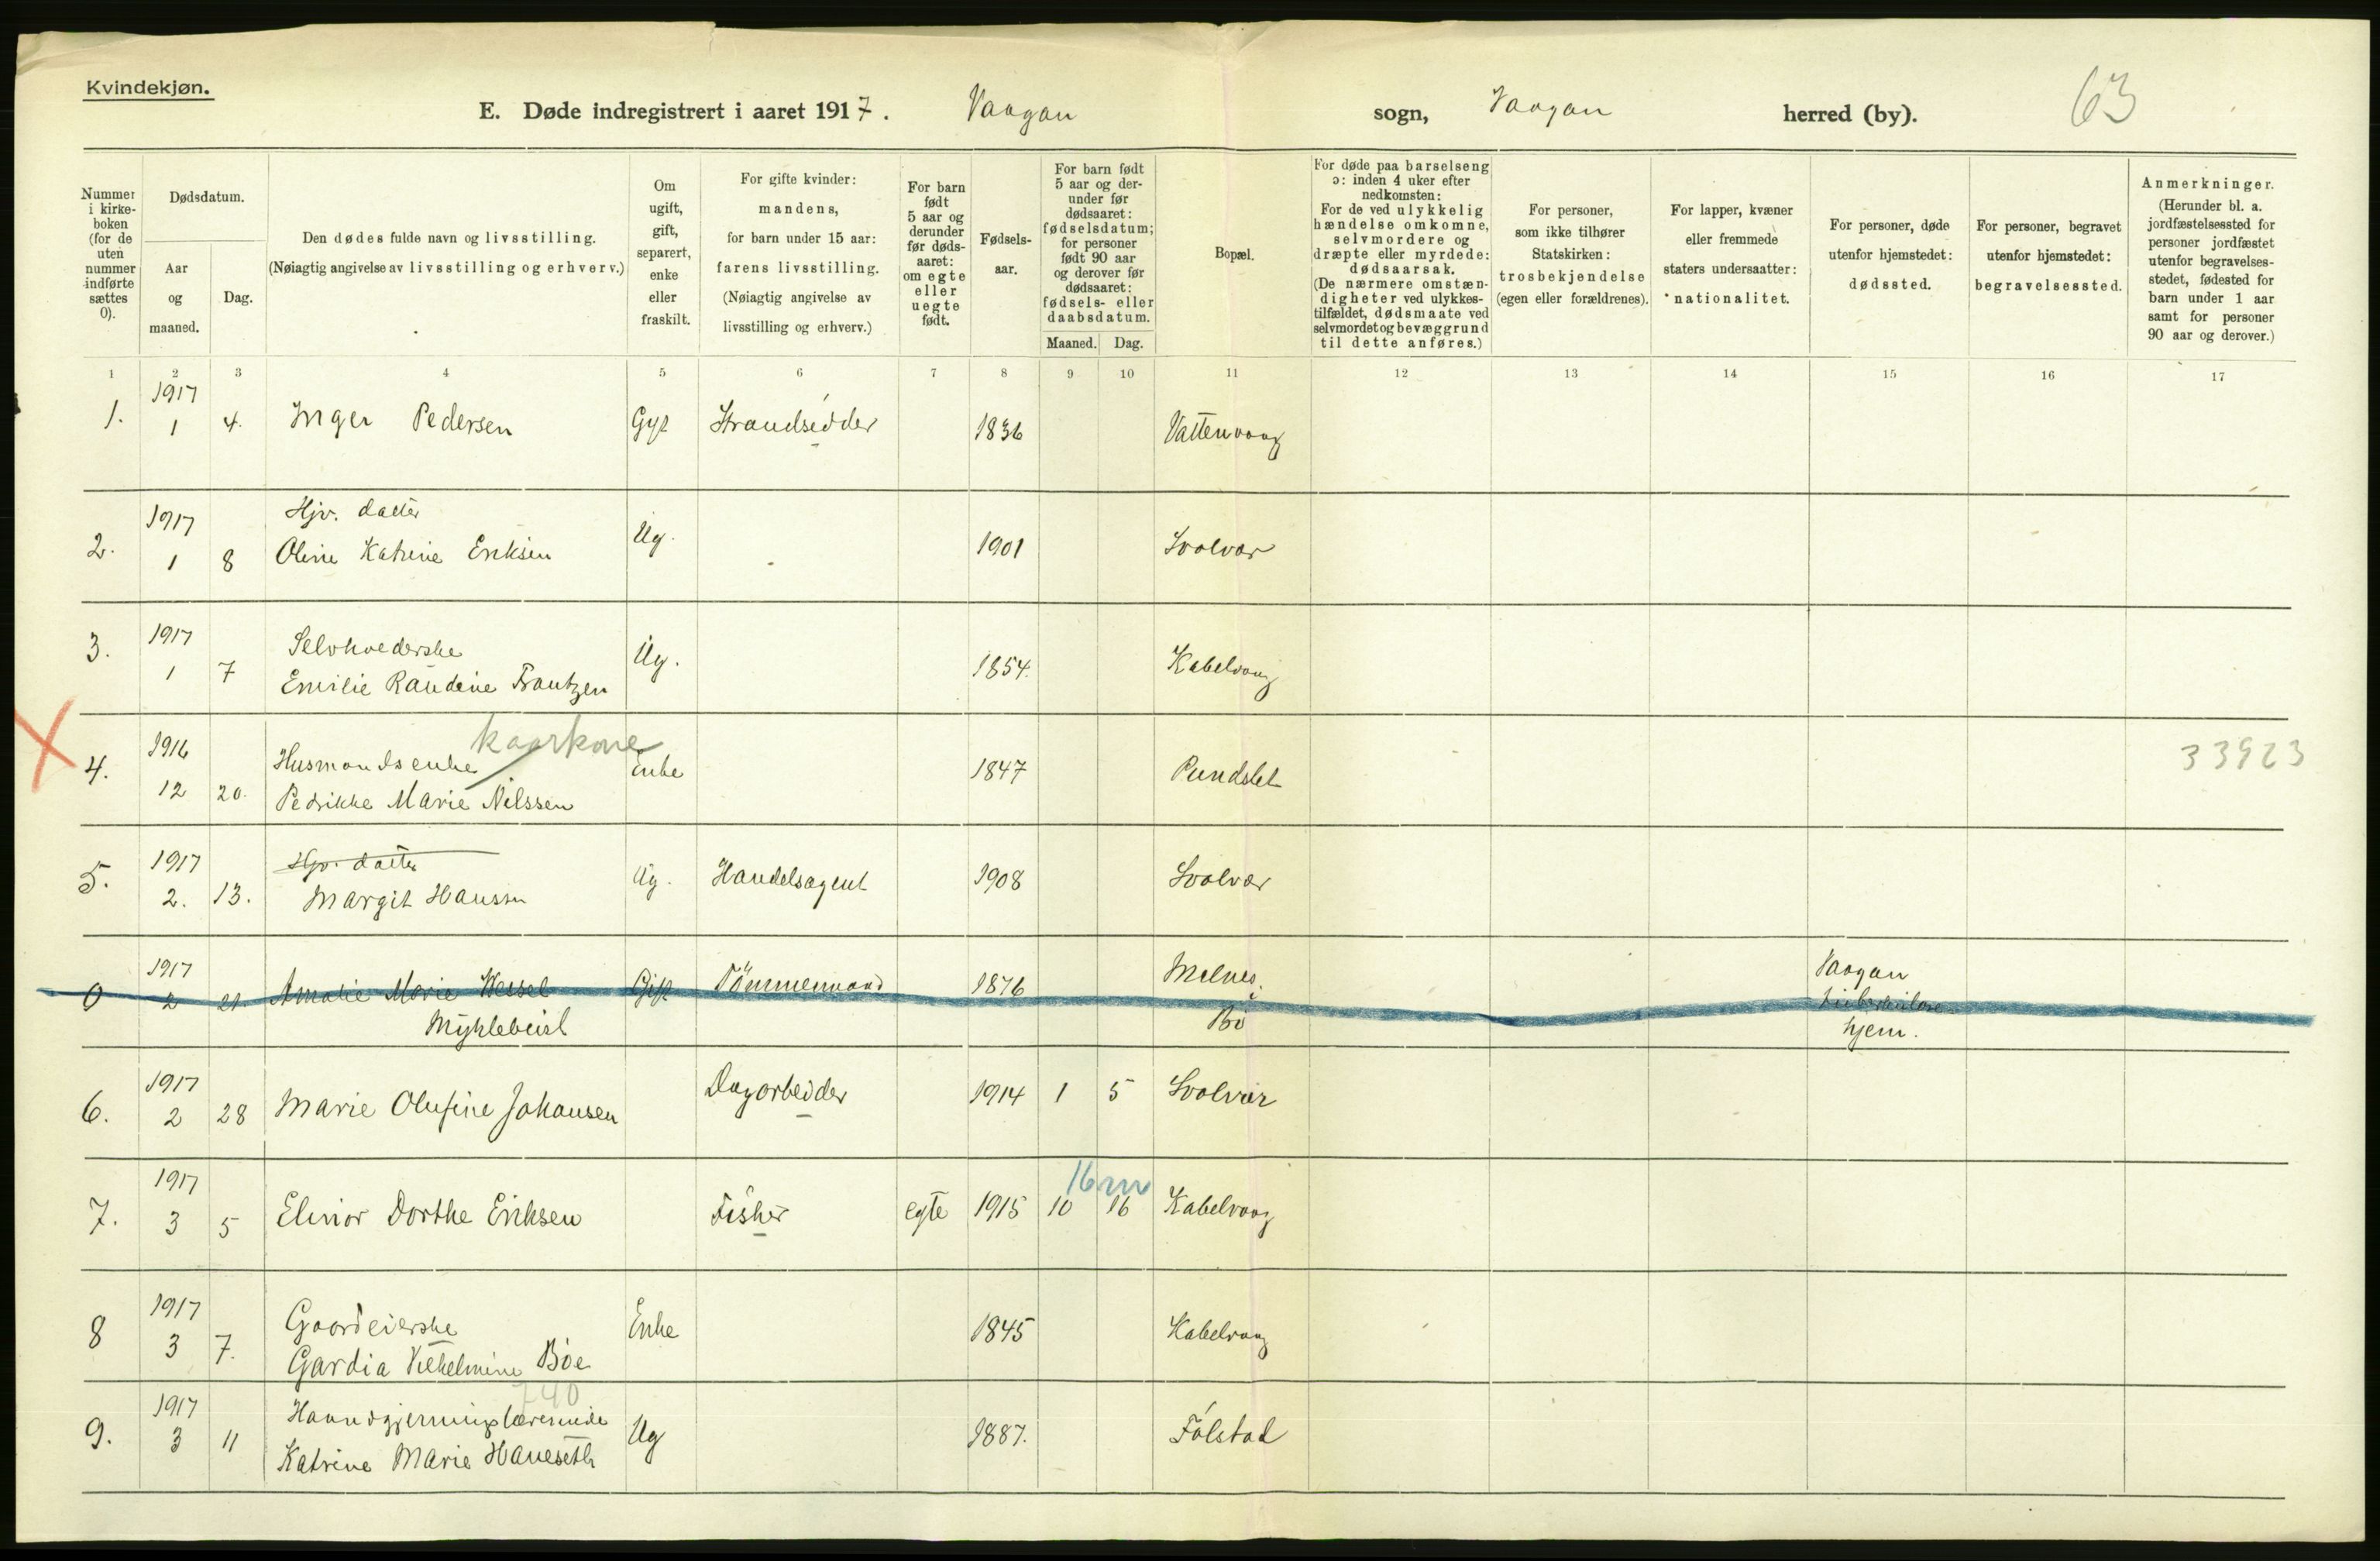 Kvindekjøn.
E. Døde indregistrert i aaret 1917. Vaagan sogn, Vaagan herred (by). 63
Nummer i kirke-boken (for de uten nummer indførte sættes 0).
Dødsdatum.
Aar og maaned.
Dag.
Den dødes fulde navn og livsstilling.
(Nøiagtig angivelse av livsstilling og erhverv.)
Om ugift, gift, separert, enke eller fraskilt.
For gifte kvinder: mandens, for barn under 15 aar: farens livsstilling. (Nøiagtig angivelse av livsstilling og erhverv.)
For barn født 5 aar og derunder før døds-aaret: om egte eller uegte født.
Fødsels-aar.
For barn født 5 aar og der-under før dødsaaret: fødselsdatum; for personer født 90 aar og derover før dødsaaret: fødsels- eller daabsdatum.
Maaned. Dag.
Bopæl.
For døde paa barselseng ɔ: inden 4 uker efter nedkomsten: For de ved ulykkelig hændelse omkomne, selvmordere og dræpte eller myrdede: dødsaarsak. (De nærmere omstæn-digheter ved ulykkes-tilfældet, dødsmaate ved selvmordet og bevæggrund til dette anføres.)
For personer, som ikke tilhører Statskirken: trosbekjendelse (egen eller forældrenes).
For lapper, kvæner eller fremmede staters undersaatter: nationalitet.
For personer, døde utenfor hjemstedet: dødssted.
For personer, begravet utenfor hjemstedet: begravelsessted.
Anmerkninger. (Herunder bl. a. jordfæstelsessted for personer jordfæstet utenfor begravelses-stedet, fødested for barn under 1 aar samt for personer 90 aar og derover.)
1 2 3 4 5 6 7 8 9 10 11 12 13 14 15 16 17
1. 1917 1 4. Inger Pedersen Gift Strandsidder 1836 Vattenvaag
2. 1917 1 8 Hjv. datter
Oline Katrine Eriksen Ug. 1901 Svolvær
3. 1917 1 7 Selvhoederske
Emilie Randine Frantzen Ug. 1854. Kabelvaag
X 4. 1916 12 20. Husmandsenke kaarkone
Pedrikke Marie Nilssen Enke 1847 Pundslet 33923
5. 1917 2. 13. Hjv. datter
Margit Hanssen Ug. Handelsagent 1908 Svolvær
0 1917 2 21. Amalie Marie Wessel
Myklebust Gift Tömmermand 1876 Melnes.
Bö Vaagan
tuberkulose
hjem.
6. 1917 2 28 Marie Olufine Johansen Dagarbeider 1914 1 5 Svolvær
7. 1917 3 5 Elinor Dorthe Eriksen Fisker egte 1915 10 16 16 m Kabelvaag
8 1917 3 7. Gaardeierske
Gardia Vilhelmine Böe Enke 1845 Kabelvaag
740
9. 1917 3 11 Haandgjerningslærerinde
Katrine Marie Haneseth Ug 1887. Fölstad